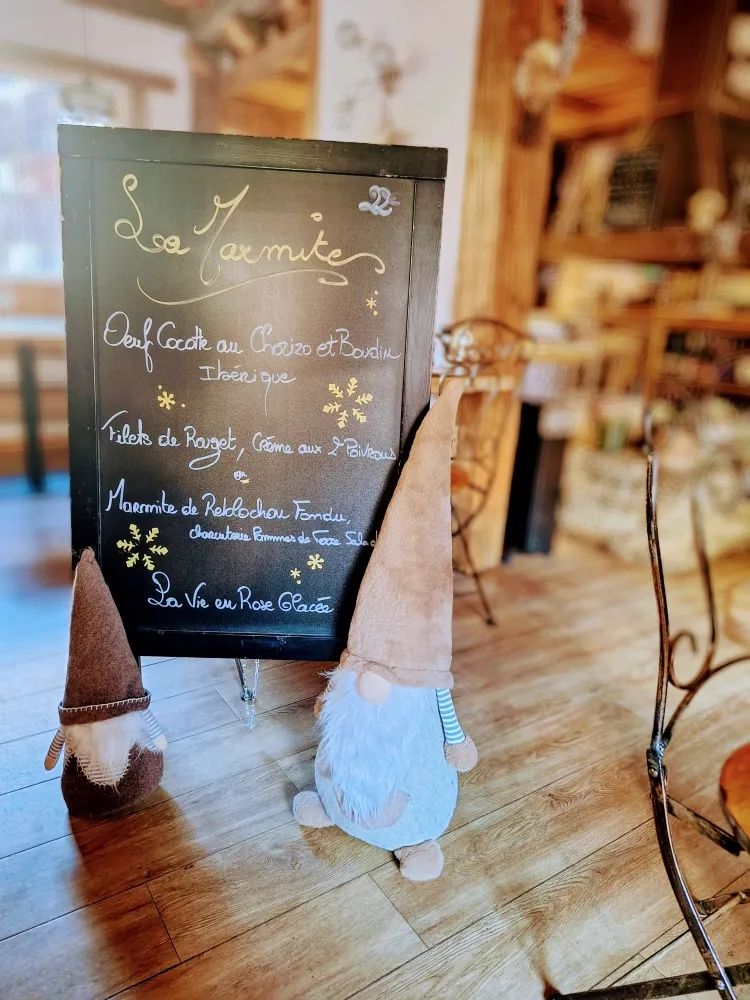 La Marmite
22€
Oeuf Cocotte au Chorizo et Boudin
Ibérique
Filets de Rouget, Crème aux 2 Poivrons
ou
Marmite de Reblochon Fondu,
charcuterie Pommes de Terre Salade
La Vie en Rose Glacée